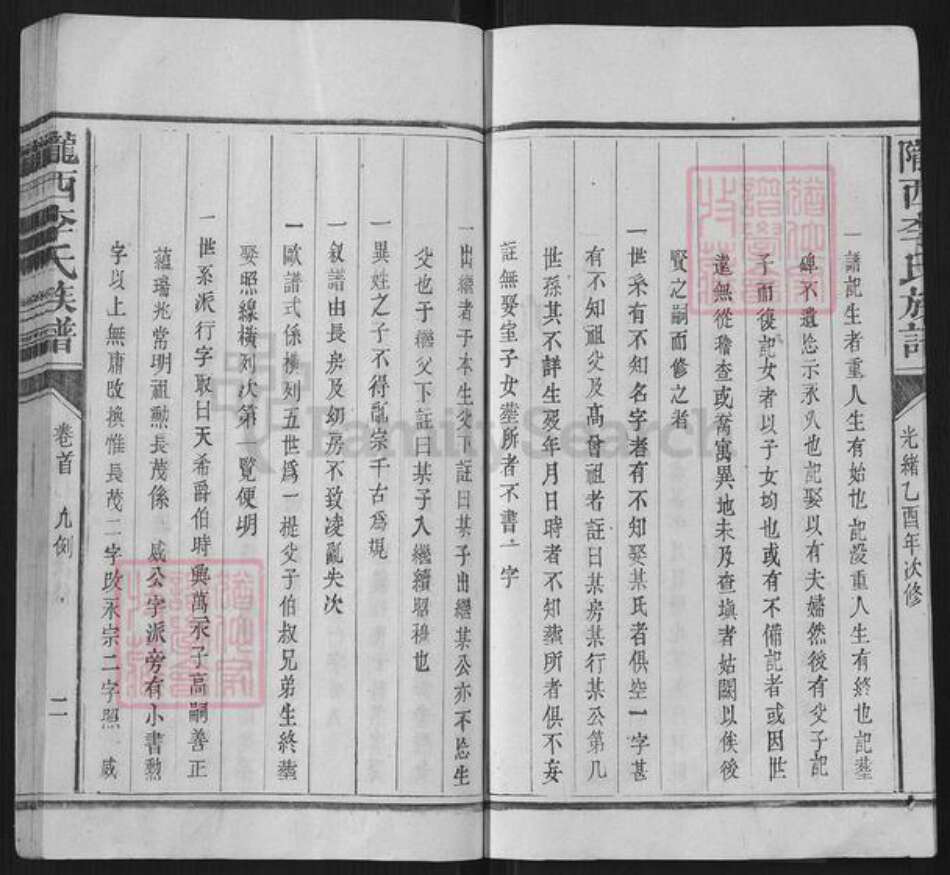 隴西李氏族譜
光緒乙酉年次修
一譜記生者重人生有始也記沒重人生有終也記塟
碑不遺忘示永久也記娶以有夫婦然後有父子記
子而復記女者以子女均也或有不備記者或因世
遠無從稽查或喬寓異地未及查塡者姑闕以俟後
賢之嗣而修之者
一世系有不知名字者有不知娶某氏者俱空一字甚
有不知祖父及高曾祖者註曰某房某行某公第几
世孫其不詳生歿年月日時者不知塟所者俱不妄
註無娶室子女塟所者不書一字
一出繼者于本生父下註曰某子出繼某公亦不忘生
父也于繼父下註曰某子入繼續昭穆也
一異姓之子不得亂宗千古爲規
一叙譜由長房及幼房不致凌亂失次
一歐譜式係橫列五世爲一提父子伯叔兄弟生終塟
娶照線橫列次第一覽便明
一世系派行字取曰天希爵伯時興萬永子高嗣善正
蘊瑞兆常明祖勲長茂係 威公字派旁有小書勲
字以上無庸改換惟長茂二字改永宗二字照 威
隴西李氏族譜
卷首 九例 二
FamilySearch